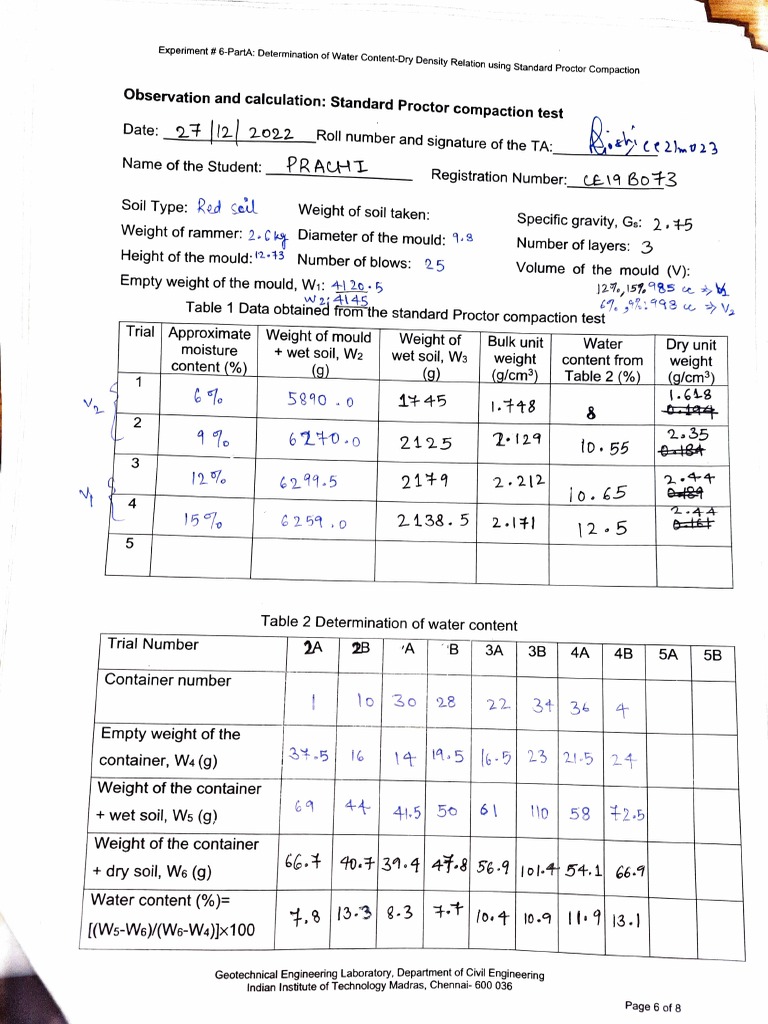 Experiment # 6-PartA: Determination of Water Content-Dry Density Relation using Standard Proctor Compaction
Observation and calculation: Standard Proctor compaction test
Date: 27/12/2022 Roll number and signature of the TA: ce21m023
Name of the Student: PRACHI Registration Number: CE19B073
Soil Type: Red soil Weight of soil taken: Specific gravity, Gs: 2.75
Weight of rammer: 2.6kg Diameter of the mould: 9.8 Number of layers: 3
Height of the mould: 12.73 Number of blows: 25 Volume of the mould (V):
Empty weight of the mould, W1: 4120.5 12%, 15% 985 cc ⇒ V1
W2: 4145 6%, 9%: 998 cc ⇒ V2
Table 1 Data obtained from the standard Proctor compaction test
Trial Approximate moisture content (%) Weight of mould + wet soil, W2 (g) Weight of wet soil, W3 (g) Bulk unit weight (g/cm3) Water content from Table 2 (%) Dry unit weight (g/cm3)
V2
1 6% 5890.0 1745 1.748 8 1.618 0.194
2 9% 6270.0 2125 2.129 10.55 2.35 0.184
V1
3 12% 6299.5 2179 2.212 10.65 2.44 0.189
4 15% 6259.0 2138.5 2.171 12.5 2.44 0.161
5
Table 2 Determination of water content
Trial Number 2A 2B A B 3A 3B 4A 4B 5A 5B
Container number 1 10 30 28 22 34 36 4
Empty weight of the container, W4 (g) 37.5 16 14 19.5 16.5 23 21.5 24
Weight of the container + wet soil, W5 (g) 69 44 41.5 50 61 110 58 72.5
Weight of the container + dry soil, W6 (g) 66.7 40.7 39.4 47.8 56.9 101.4 54.1 66.9
Water content (%)= [(W5-W6)/(W6-W4)]×100 7.8 13.3 8.3 7.7 10.4 10.9 11.9 13.1
Geotechnical Engineering Laboratory, Department of Civil Engineering
Indian Institute of Technology Madras, Chennai- 600 036
Page 6 of 8